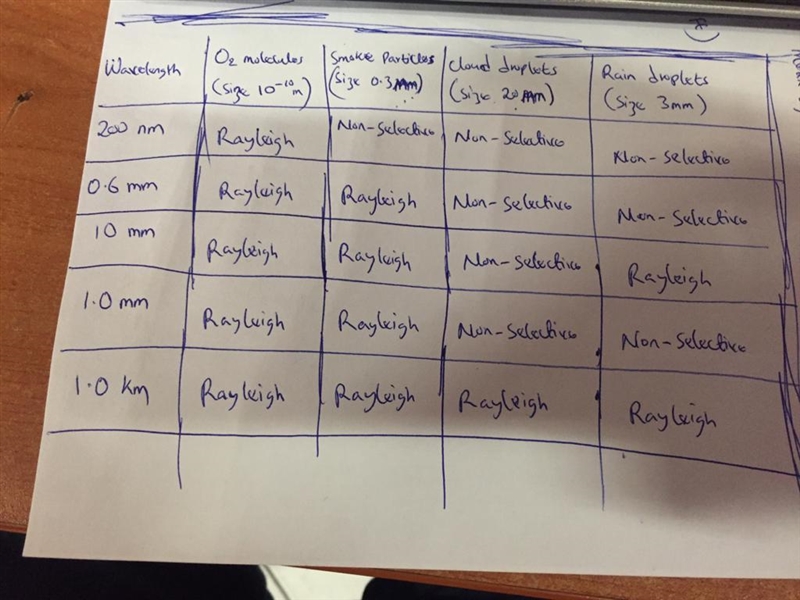 Wavelength
O2 molecules
(Size 10^-10 m)
Smoke Particles
(Size 0.3mm)
Cloud droplets
(Size 20mm)
Rain droplets
(Size 3mm)
200 nm
Rayleigh
Non-Selective
Non-Selective
Non-Selective
0.6 mm
Rayleigh
Rayleigh
Non-Selective
Non-Selective
10 mm
Rayleigh
Rayleigh
Non-Selective
Rayleigh
1.0 mm
Rayleigh
Rayleigh
Non-Selective
Non-Selective
1.0 Km
Rayleigh
Rayleigh
Rayleigh
Rayleigh